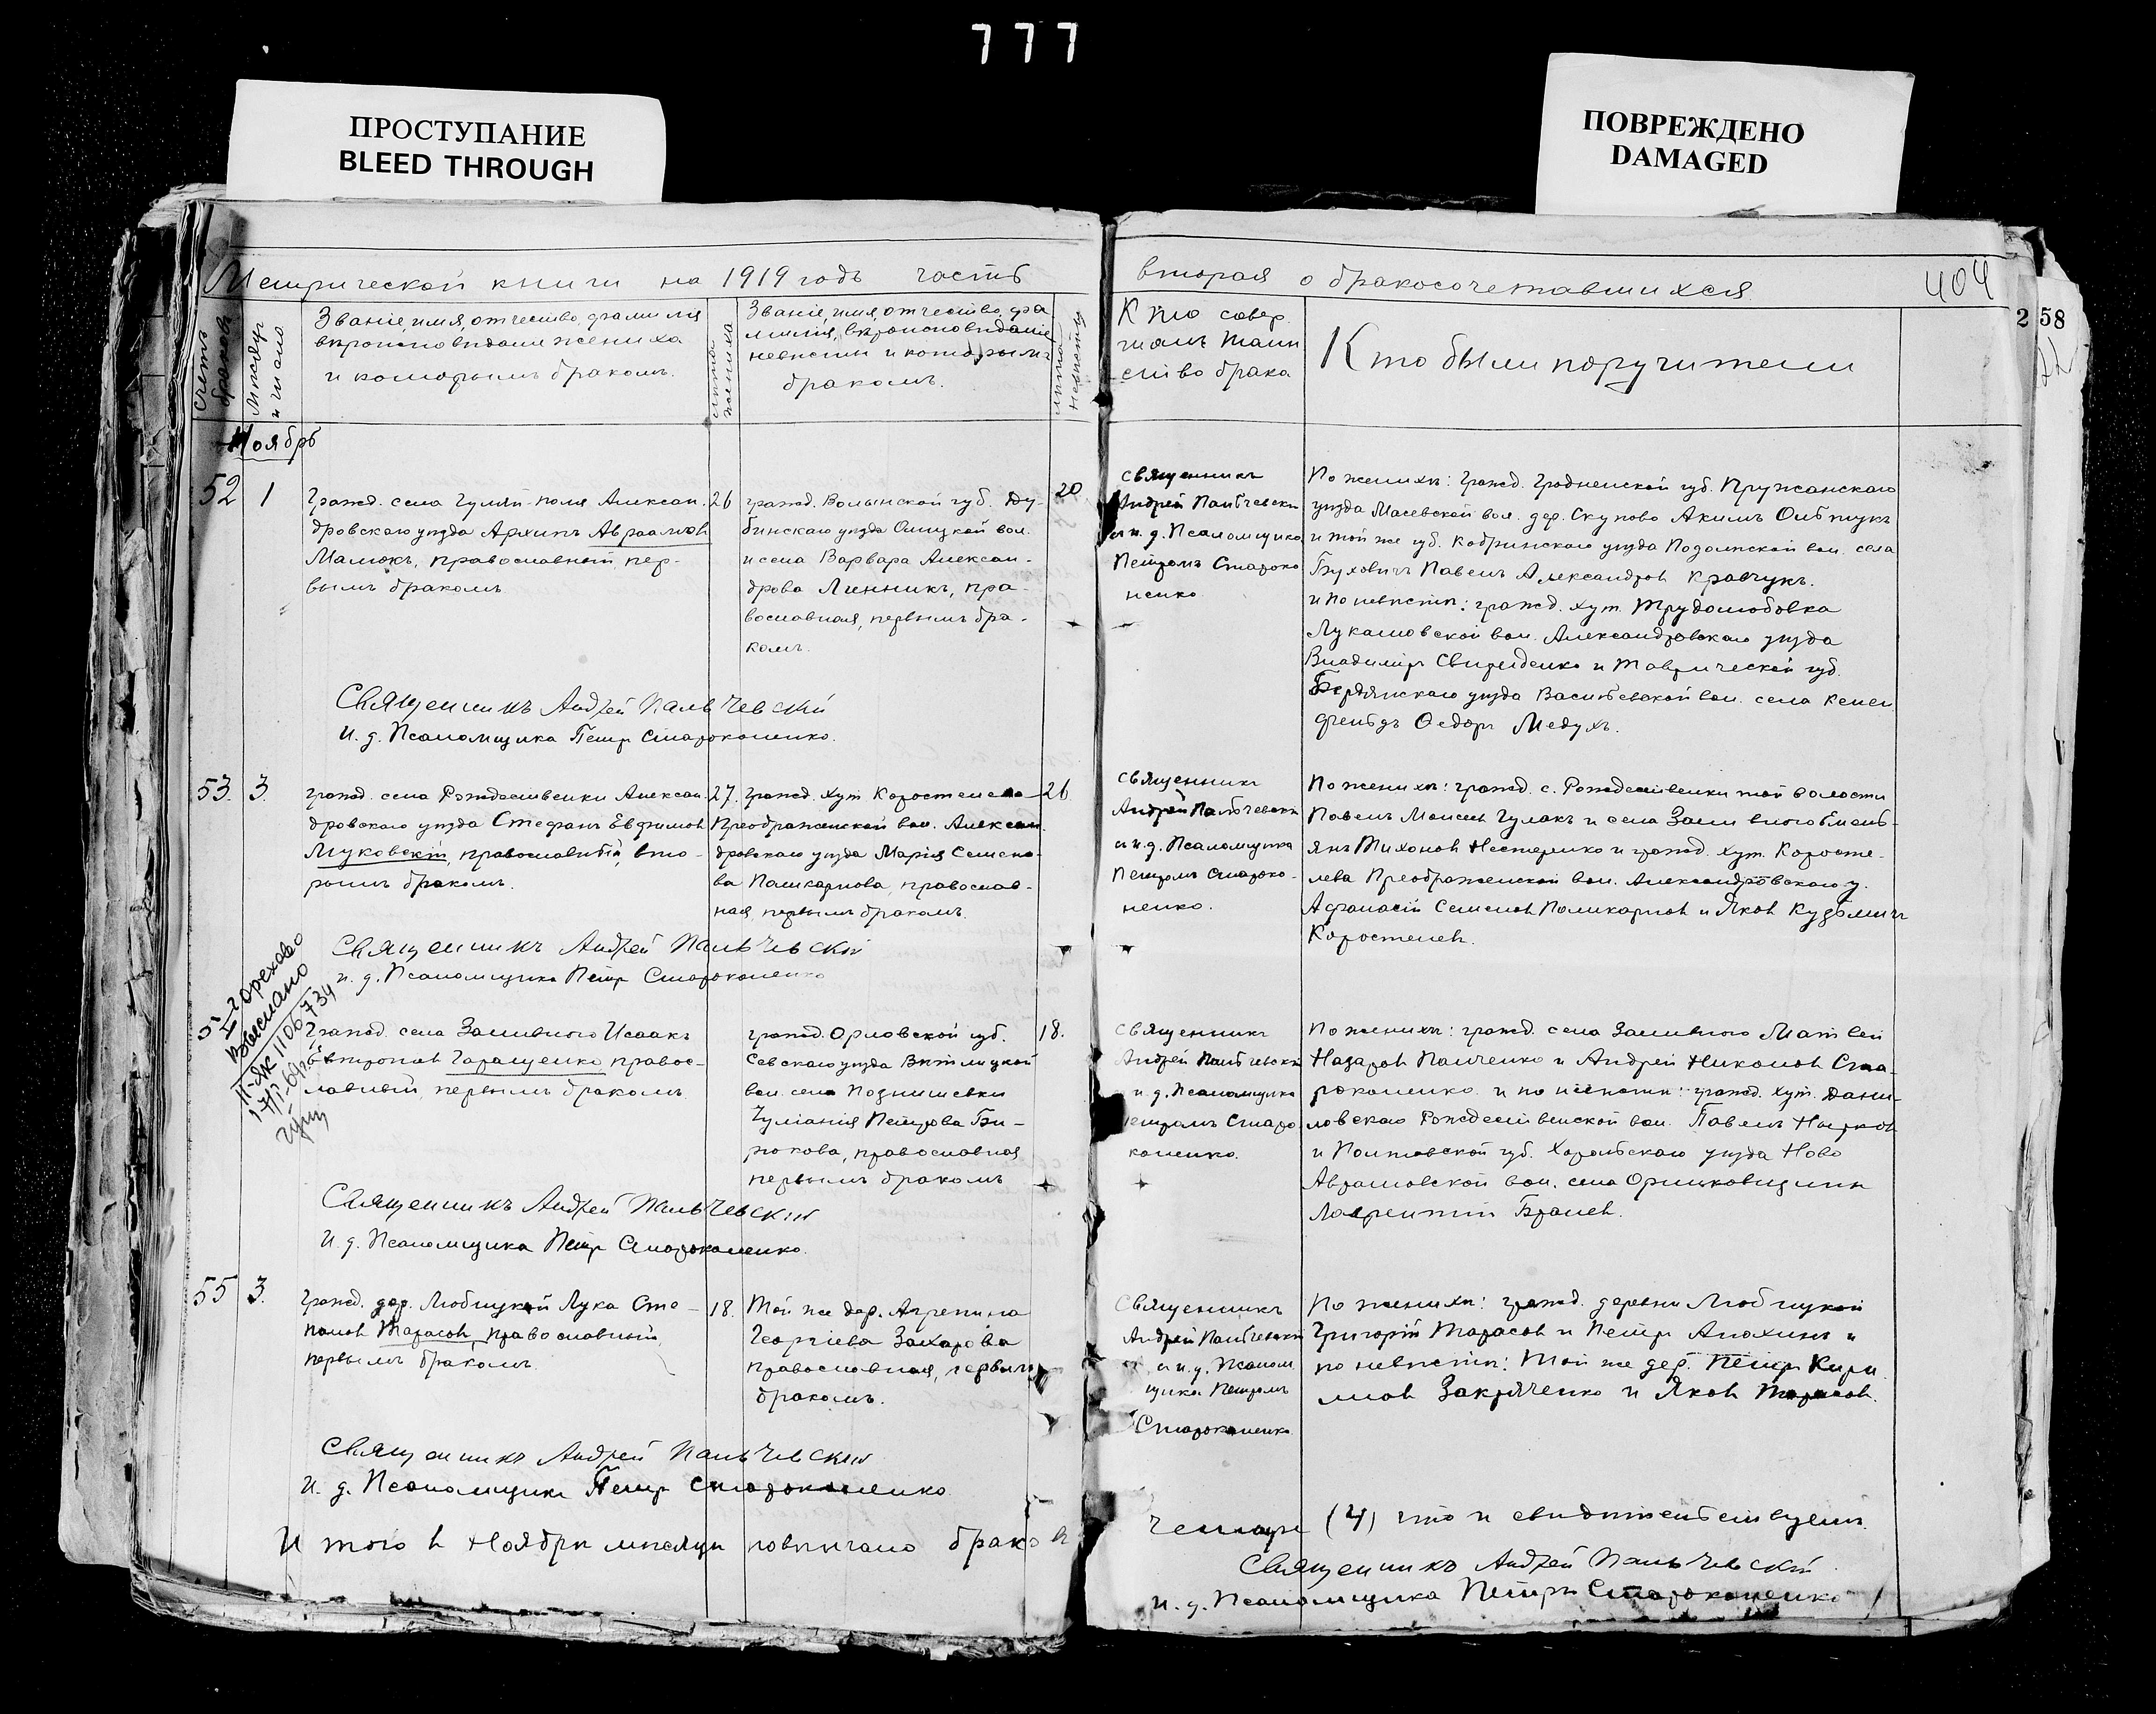 777
ПРОСТУПАНИЕ
BLEED THROUGH
ПОВРЕЖДЕНО
DAMAGED
Метрической книги на 1919 годъ часть
вторая о бракосочетавшихся
404
258
Счетъ браковъ
Мѣсяцъ и число
Званіе, имя, отчество, фамилія
вѣроисповѣданіе жениха
и которымъ бракомъ.
лѣта жениха
Званіе, имя, отчество, фа
милія, вѣроисповѣданіе
невѣсты и которымъ
бракомъ.
лѣта невѣсты
Кто совер
шалъ таин
ство брака
Кто были поручители
Ноябрь
52
1
Гражд. села Гуляй-поля Алексан.
дровскаго уѣзда Архипъ Авраамовъ
Малюкъ, православный пер-
вымъ бракомъ
26
гражд. Волынской губ. Ду-
бинскаго уѣзда Олыцкой вол.
и села Варвара Алексан-
дрова Линникъ, пра-
вославная, первымъ бра-
комъ.
20
священникъ
Андрей Пальчевскі
и и. д. Псаломщика
Петромъ Староко
ненко
По женихѣ: гражд. Гродненской губ. Пружанскаго
уѣзда Масевской вол. дер. Скупово Акимъ
и той же губ. Кобринскаго уѣзда вол. села
Буховичъ Павелъ Александровъ Кравчукъ.
и по невѣстѣ: гражд. хут. Трудолюбовка
Лукашовской вол. Александровскаго уѣзда
Владиміръ Свириденко и Таврической губ.
Бердянскаго уѣзда Васильевской вол. села
Ѳедоръ Медухъ.
Священникъ Андрей Пальчевскій
И. д. Псаломщика Петръ Староконенко.
53.
3.
гражд. села Рождественки Алексан.
дровскаго уѣзда Стефанъ Евфимовъ
Муковскій, православный, вто-
рымъ бракомъ.
27.
гражд. хут. Коростелева
Преображенской вол. Алексан.
дровскаго уѣзда Марія Семено-
ва Поликарпова, православ-
ная, первымъ бракомъ.
26
священникъ
Андрей Пальчевскі
и и. д. Псаломщика
Петромъ Староко-
ненко.
По женихѣ: гражд. с. Рождественки той волости
Павелъ Моисеевъ Гулакъ и села Заливного Емель-
янъ Тихоновъ Нестеренко и гражд. хут. Коросте-
лева Преображенской вол. Александровскаго у.
Афанасій Семеновъ Поликарповъ и Яковъ Кузьмичъ
Коростелевъ.
Священникъ Андрей Пальчевскій
и. д. Псаломщика Петръ Староконенко
Орехово
Выслано
II-ЯЖ 1106734
Гражд. села Заливного Исаакъ
Евтроповъ Гаращенко правос-
лавный, первымъ бракомъ.
гражд. Орловской губ.
Севскаго уѣзда
вол. села
Петрова Би-
рюкова, православная
первымъ бракомъ
18.
Священникъ
Андрей Пальчевскі
и. д. Псаломщика
Петромъ Старо
коненко.
По женихѣ: гражд. села Заливного Матвей
Назаровъ Панченко и Андрей Никоновъ Ста-
роконенко и по невѣстѣ: гражд. хут. Дани-
ловскаго Рождественской вол. Павелъ
и Полтавской губ. Хорольскаго уѣзда Ново
Аврамовской вол. села
Лаврентій
Священникъ Андрей Пальчевскій
И. д. Псаломщика Петръ Староконенко.
55
3.
Гражд. дер. Любицкой Лука Сте-
пановъ Тарасовъ православный,
первымъ бракомъ.
18.
Той же дер. Агрепина
Георгіева Захарова
православная, первымъ
бракомъ.
Священникъ
Андрей Пальчевскій
и и. д. Псалом
щика Петромъ
Староконенко
По женихѣ: гражд. деревни Любицкой
Григорій Тарасовъ и Петръ Анохинъ и
по невѣстѣ: той же дер. Петръ Кири
ловъ Захарченко и Яковъ Тарасовъ.
Священникъ Андрей Пальчевскій
И. д. Псаломщика Петръ Староконенко
Итого въ Ноябрѣ мѣсяцѣ повѣнчано браковъ
четыре (4) что и свидѣтельствуемъ.
Священникъ Андрей Пальчевскій.
и. д. Псаломщика Петръ Староконенко